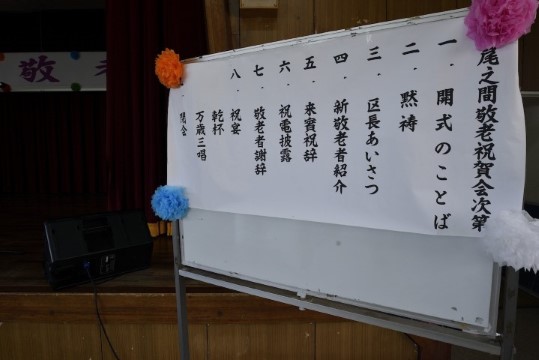 尾之間敬老祝賀会次第
一．開式のことば
二．黙祷
三．区長あいさつ
四．新敬老者紹介
五．来賓祝辞
六．祝電披露
七．敬老者謝辞
八．祝宴
乾杯
万歳三唱
閉会
敬老